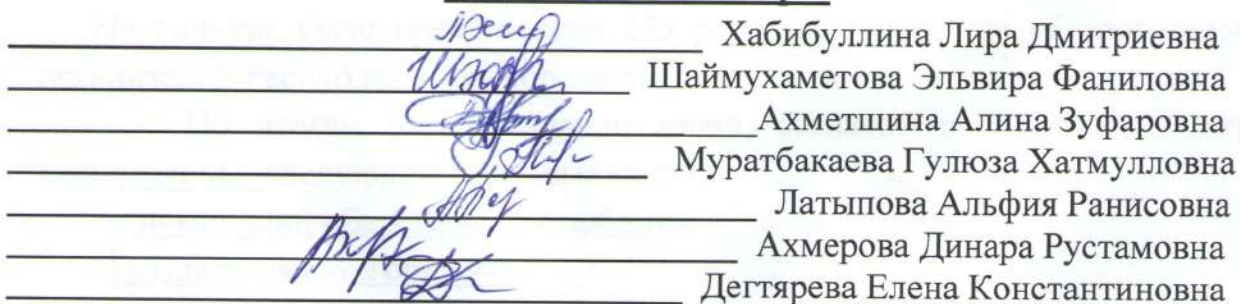 Хабибуллина Лира Дмитриевна
Шаймухаметова Эльвира Фаниловна
Ахметшина Алина Зуфаровна
Муратбакаева Гулюза Хатмулловна
Латыпова Альфия Ранисовна
Ахмерова Динара Рустамовна
Дегтярева Елена Константиновна